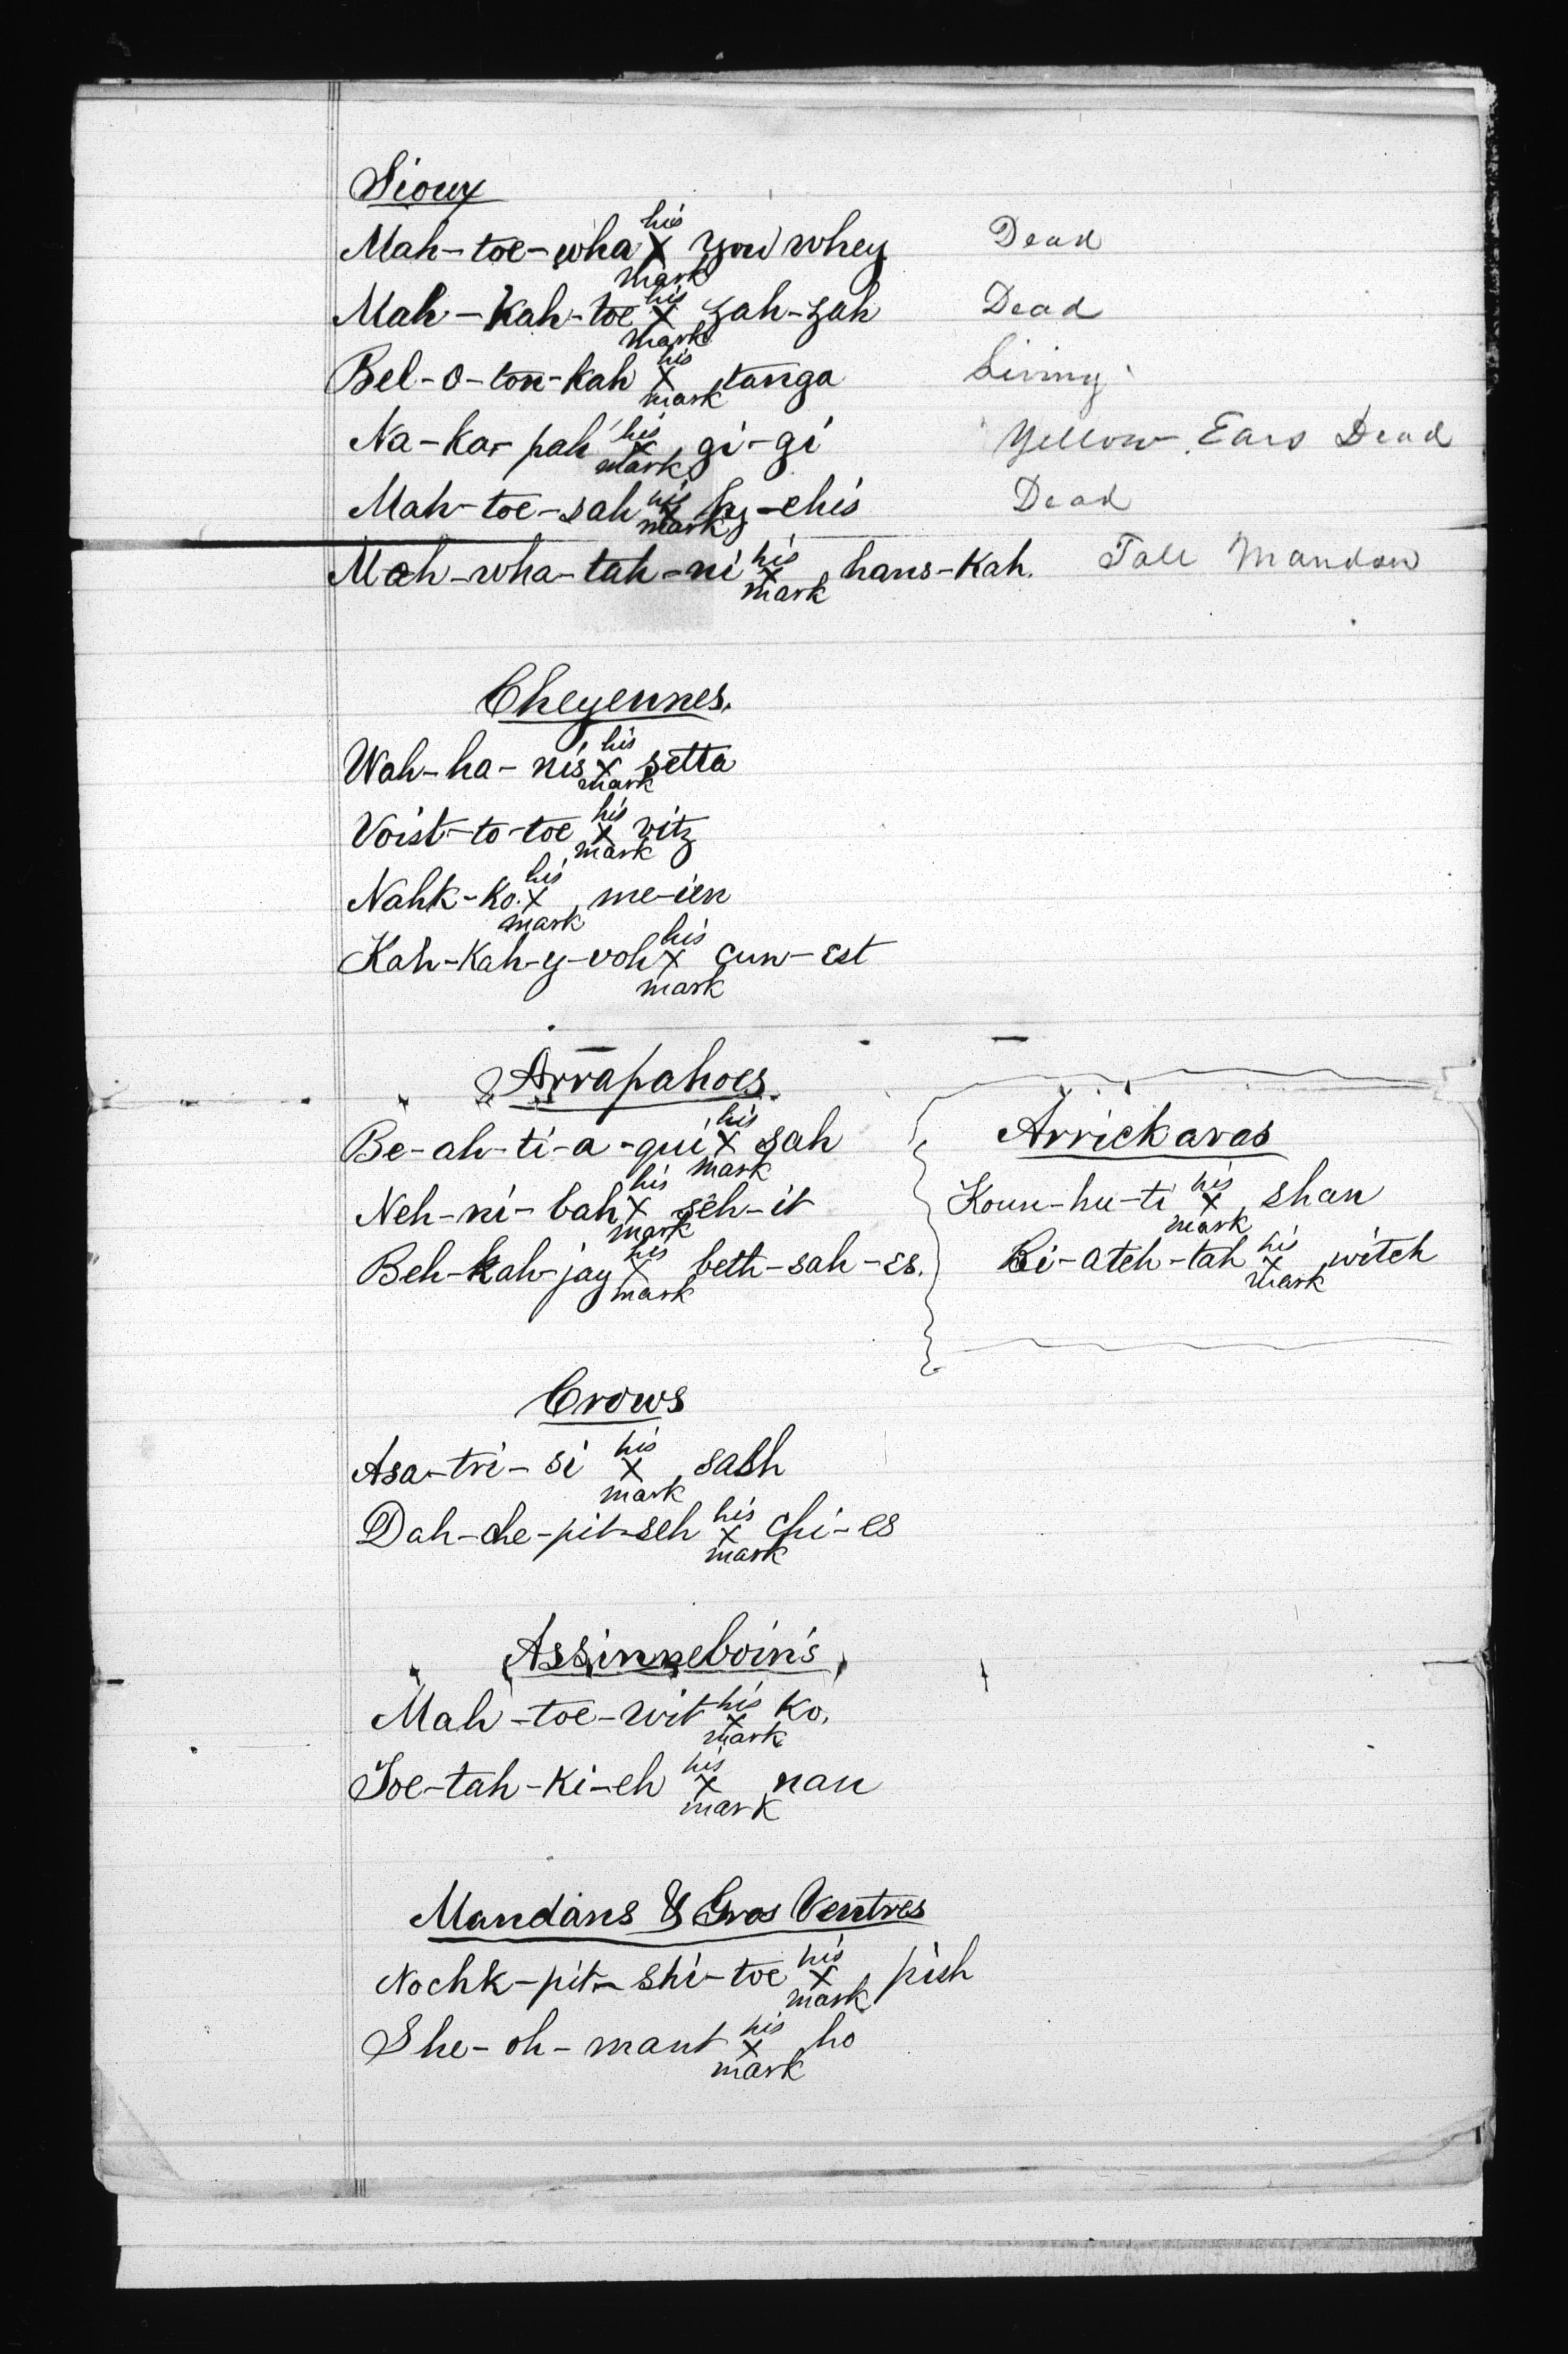 Sioux
Mah-toe-wha his X mark you whey Dead
Mah-Kah-toe his X mark zah-zah Dead
Bel-o-ton-kah his X mark tanga Living
Na-ka-pah his X mark gi-gi Yellow Ears Dead
Mah-toe-sah his X mark hy-chis Dead
Mah-wha-tah-ni his X mark hans-Kah. Tall Mandan
Cheyennes.
Wah-ha-nis his X mark setta
Voist-to-toe his X mark vitz
Nahk-Ko. his X mark me-ien
Kah-Kah-y-woh his X mark cun-est
& Arrapahoes.
Be-ah-ti-a-qui his X mark sah
Neh-ni-bah his X mark seh-it
Beh-kah-jay his X mark beth-sah-es.
Arrickaras
Koun-hu-ti his X mark shan
Bi-atch-tah his X mark witch
Crows
Asa-tri-si his X mark sash
Dah-che-pit-seh his X mark chi-es
Assinneboin's
Mah-toe-wit his X mark Ko.
Toe-tah-Ki-eh his X mark nan
Mandans & Gros Ventres
Nochk-pit-shi-toe his X mark pish
She-oh-mant his X mark ho